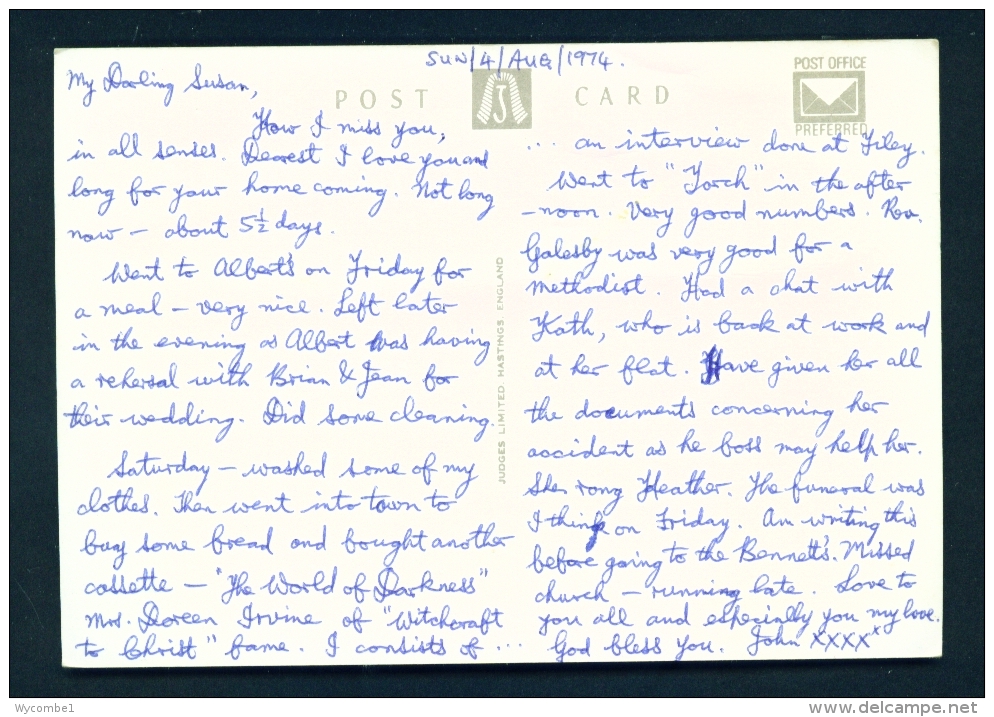 SUN/4/AUG/1974.
POST CARD
POST OFFICE
PREFERRED
My Darling Susan,
How I miss you,
in all senses. Dearest I love you and
long for your home coming. Not long
now – about 5½ days.
Went to Albert's on Friday for
a meal – very nice. Left later
in the evening as Albert was having
a rehersal with Brian & Jean for
their wedding. Did some cleaning.
Saturday – washed some of my
clothes. Then went into town to
buy some bread and bought another
cassette – "The World of Darkness"
Mrs. Doreen Irvine of "Witchcraft
to Christ" fame. I consists of ...
JUDGES LIMITED, HASTINGS, ENGLAND
... an interview done at Filey.
Went to "Torch" in the after
-noon. Very good numbers. Rev.
Galesby was very good for a
methodist. Had a chat with
Kath, who is back at work and
at her flat. Have given her all
the documents concerning her
accident as he boss may help her.
She rong Heather. The funeral was
I think on Friday. Am writing this
before going to the Bennett's. Missed
church – running late. Love to
you all and especially you my love.
God bless you. John xxxxx
Wycombe1
www.delcampe.net